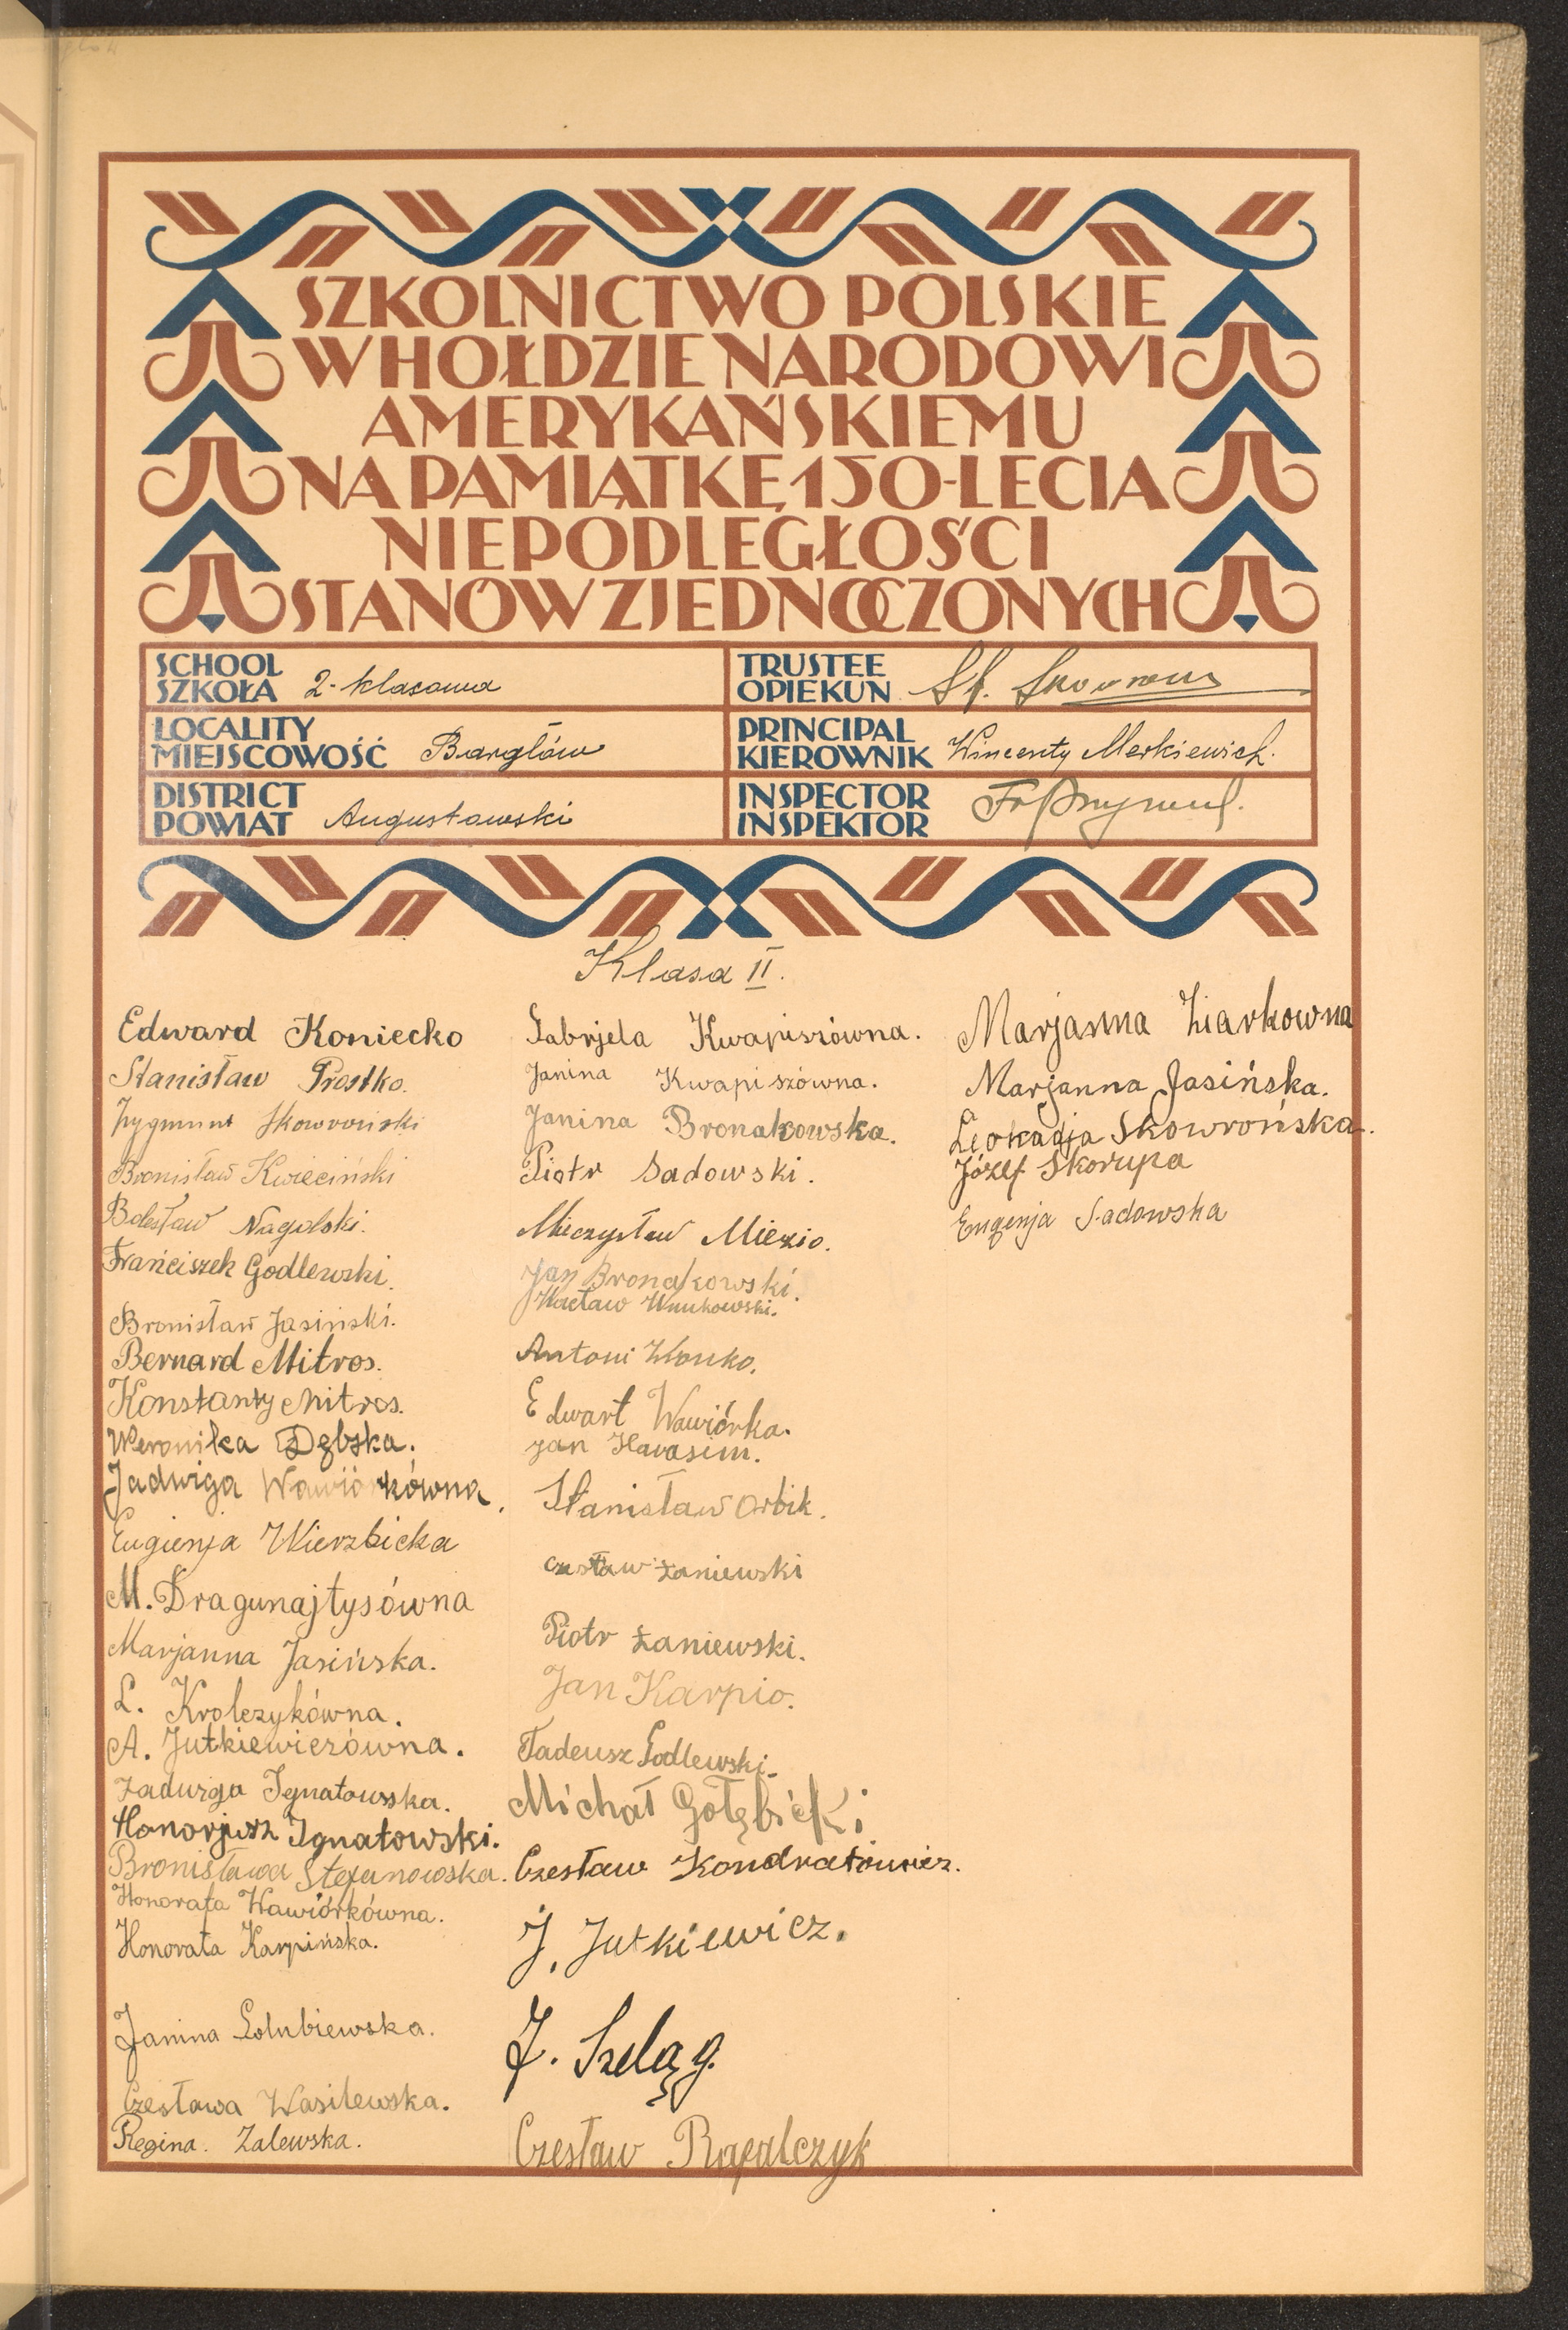 SZKOLNICTWO POLSKIE
W HOŁDZIE NARODOWI
AMERYKAŃSKIEMU
NA PAMIĄTKĘ 150-LECIA
NIEPODLEGŁOŚCI
STANÓW ZJEDNOCZONYCH
SCHOOL
SZKOŁA 2-klasowa
TRUSTEE
OPIEKUN St.
LOCALITY
MIEJSCOWOŚĆ Bargłów
PRINCIPAL
KIEROWNIK Wincenty Merkiewicz.
DISTRICT
POWIAT Augustowski
INSPECTOR
INSPEKTOR
Klasa II.
Edward Koniecko
Stanisław Prostko.
Zygmunt Skowroński
Bronisław Kwieciński
Bolesław Nagolski.
Frańciszek Godlewski.
Bronisław Jasiński.
Bernard Mitros.
Konstanty Mitros.
Weronika Dębska.
Jadwiga Wawiórkówna.
Eugienja Wierzbicka
M. Dragunajtysówna
Marjanna Jasińska.
L. Krolczykówna.
A. Jutkiewiczówna.
Jadwiga Ignatowska.
Honorjusz Ignatowski.
Bronisława Stefanowska.
Honorata Wawiórkówna.
Honorata Karpińska.
Janina Gołubiewska.
Czesława Wasilewska.
Regina. Zalewska.
Gabrjela Kwapiszówna.
Janina Kwapiszówna.
Janina Bronakowska.
Piotr Sadowski.
Mieczysław Miezio.
Jan Bronakowski.
Wacław Wnukowski.
Antoni
Edwart Wawiórka.
Jan Harasim.
Stanisław Orbik.
Czesław Łaniewski
Piotr Łaniewski.
Jan Karpio.
Tadeusz Godlewski.
Michał Gołębicki
Czesław Kondratowicz.
J. Jutkiewicz.
J. Szeląg.
Czesław Rapalczyk
Marjanna Żiarkowna
Marjanna Jasińska.
Leokadja Skowrońska.
Józef Skorupa
Eugenja Sadowska